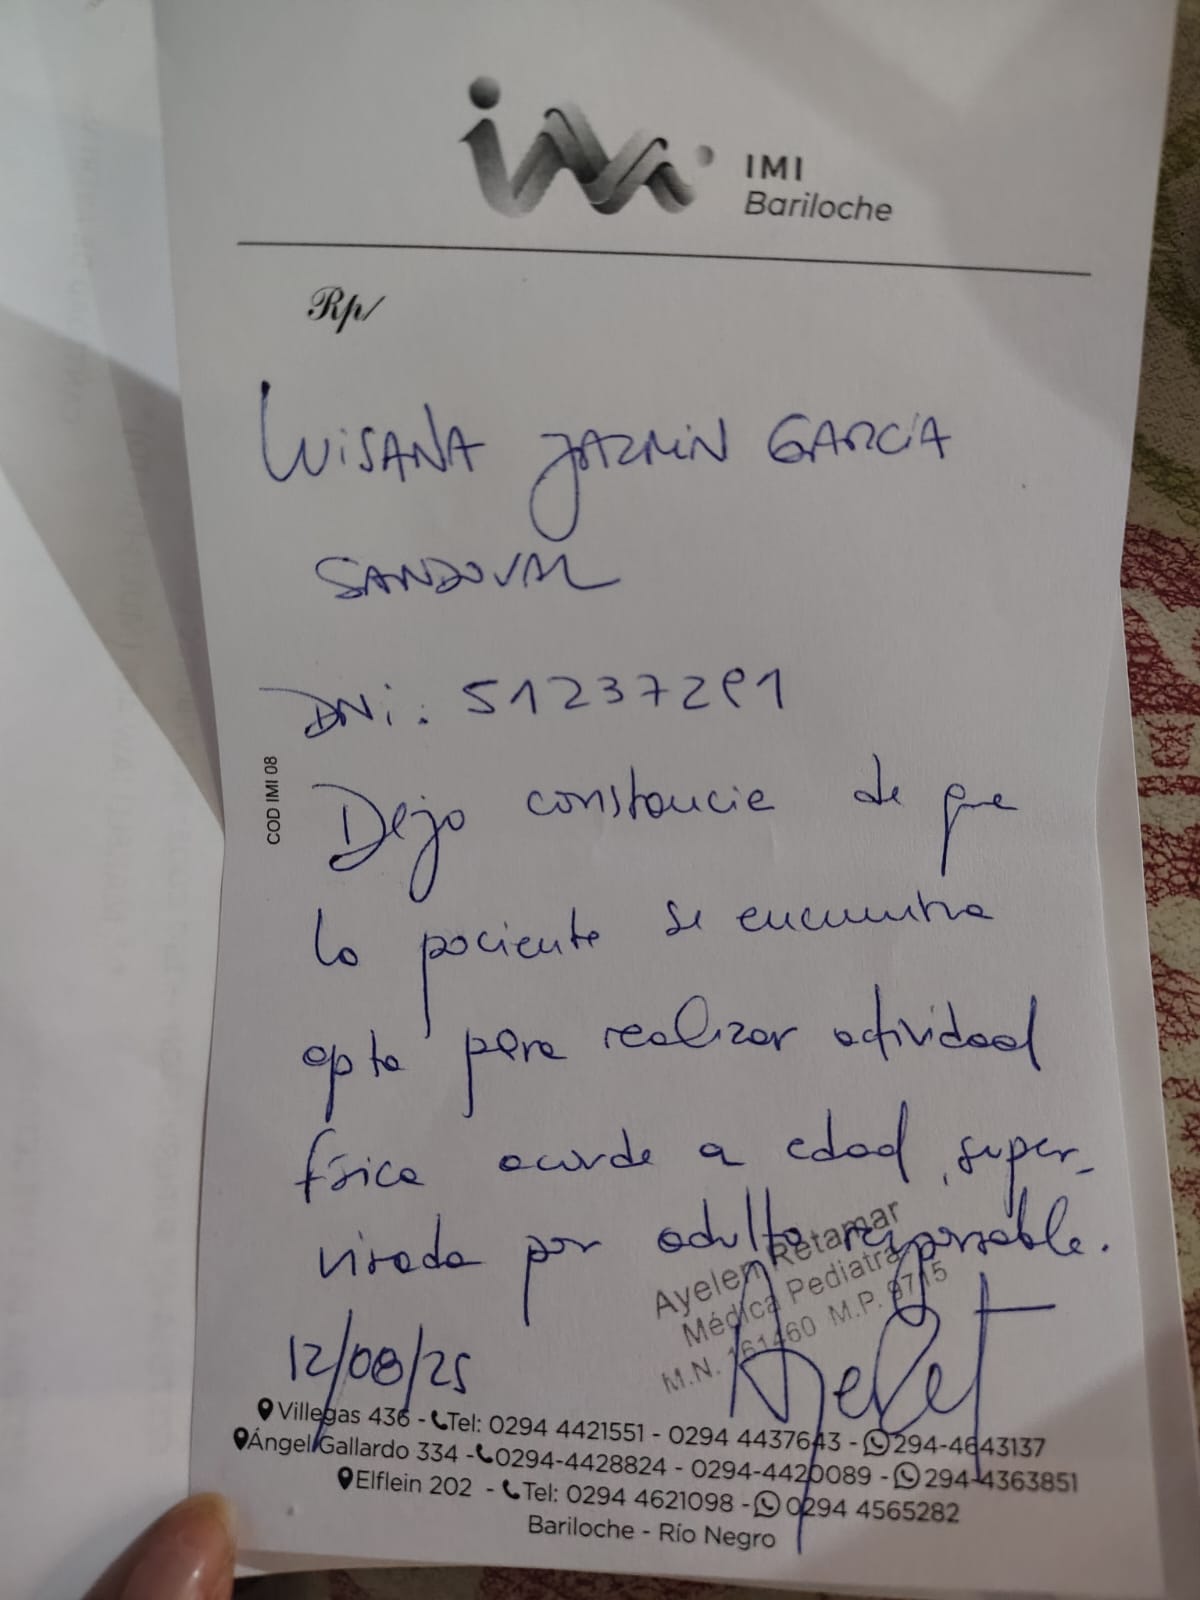 imi
IMI
Bariloche
Rp/
LUISANA JAZMIN GARCÍA
SANDOVAL
DNi: 51237291
COD IMI 08
Dejo constancia de que
la paciente se encuentra
apta para realizar actividad
física acorde a edad, super-
visada por adulto responsable.
Ayelen Retamar
Médica Pediatra
M.N. 161460 M.P. 9715
12/08/25
Villegas 436 - Tel: 0294 4421551 - 0294 4437643 - 294-4643137
Ángel Gallardo 334 - 0294-4428824 - 0294-4420089 - 294-4363851
Elflein 202 - Tel: 0294 4621098 - 0294 4565282
Bariloche - Río Negro